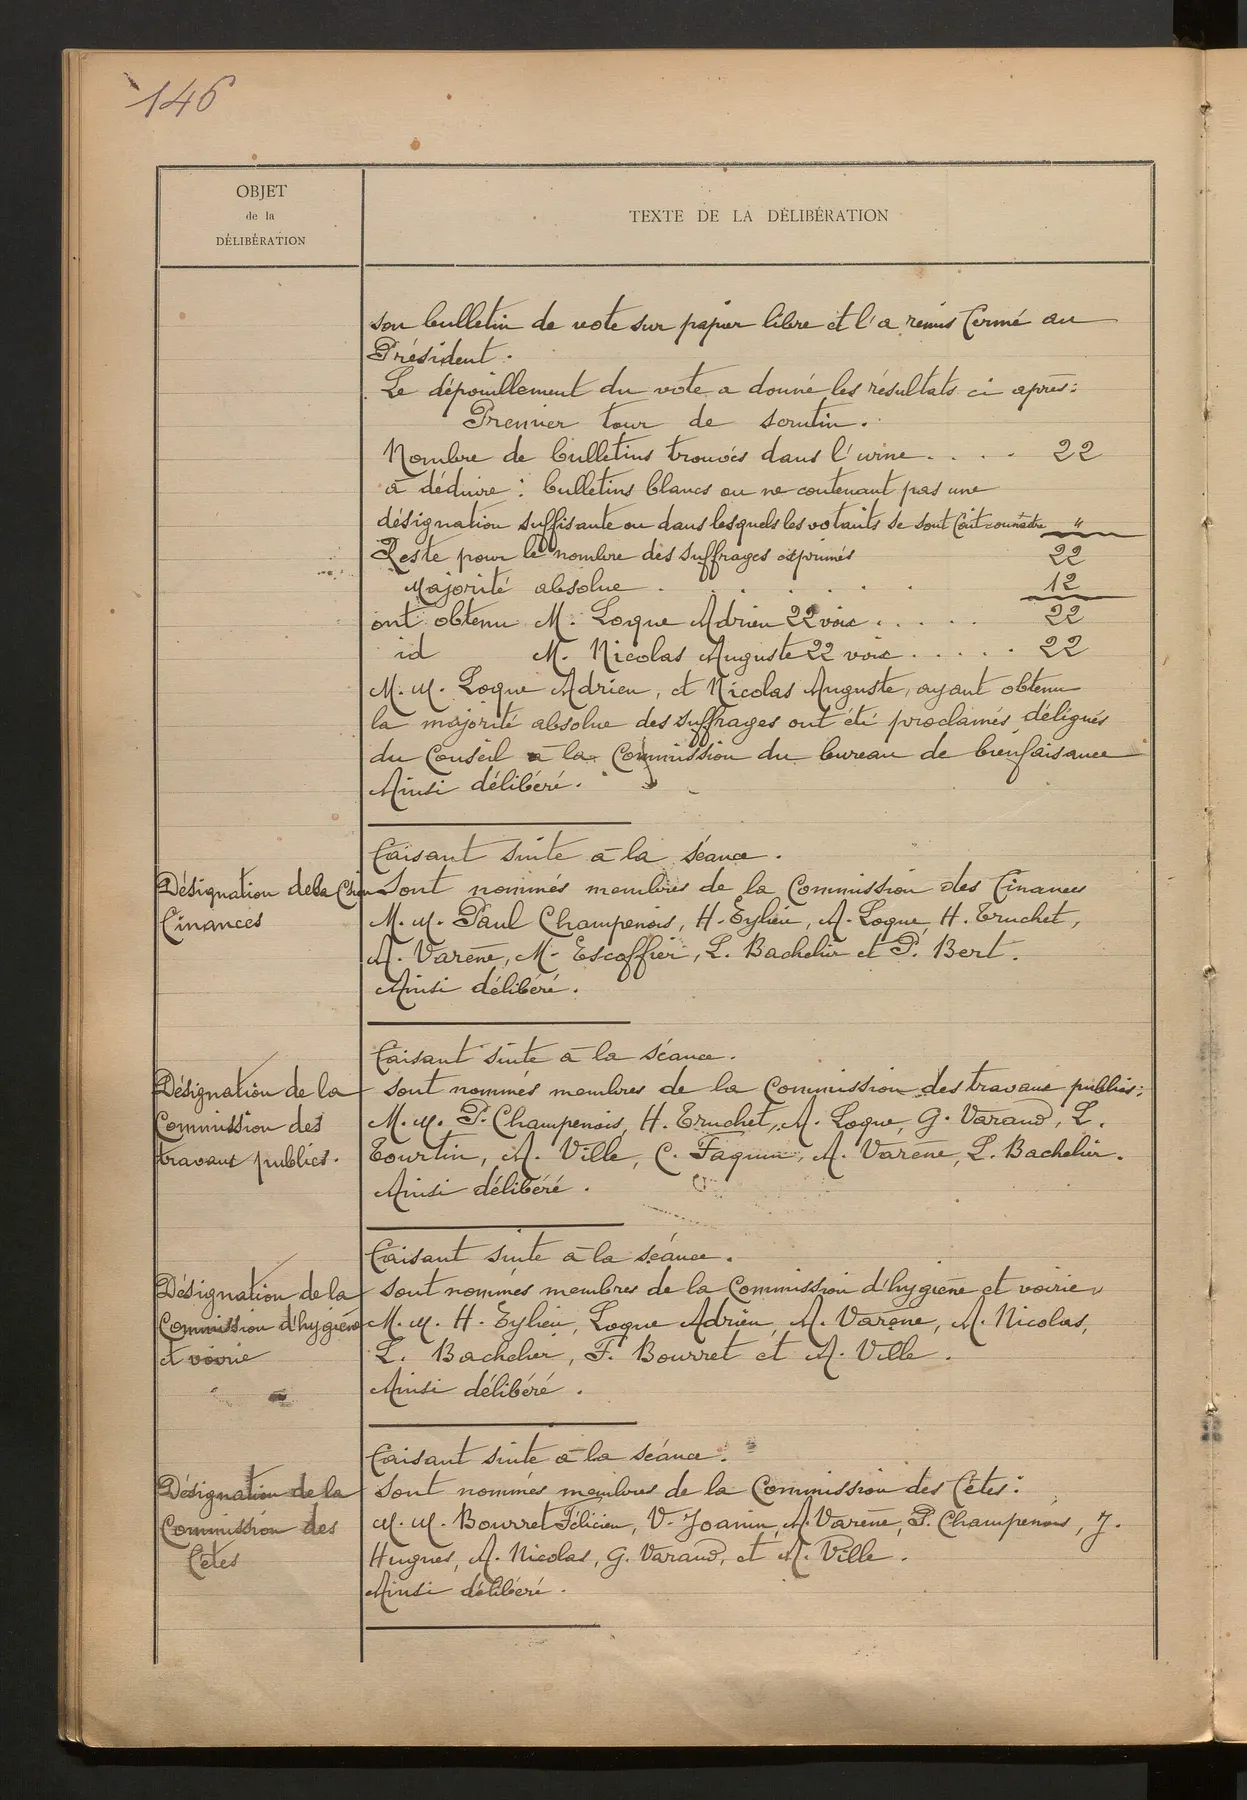 146
OBJET
de la
DÉLIBÉRATION
TEXTE DE LA DÉLIBÉRATION
son bulletin de vote sur papier libre et l'a remis fermé au
Président.
Le dépouillement du vote a donné les résultats ci après:
Premier tour de scrutin.
Nombre de bulletins trouvés dans l'urne . . . . 22
à déduire : bulletins blancs ou ne contenant pas une
désignation suffisante ou dans lesquels les votants se sont fait connaître "
Reste pour le nombre des suffrages exprimés 22
Majorité absolue . . . . . . 12
ont obtenu M. Loque Adrien 22 voix . . . . . 22
id M. Nicolas Auguste 22 voix . . . . . 22
M. M. Loque Adrien, et Nicolas Auguste, ayant obtenu
la majorité absolue des suffrages ont été proclamés délégués
du Conseil à la Commission du bureau de bienfaisance
Ainsi délibéré.
Faisant suite à la séance.
Désignation de la Cion
Finances
Sont nommés membres de la Commission des Finances
M. M. Paul Champenois, H. Eylieu, A. Loque, H. Truchet,
A. Varène, M. Escoffier, L. Bachelier et P. Bert.
Ainsi délibéré.
Faisant suite à la séance.
Désignation de la
Commission des
travaux publics.
sont nommés membres de la Commission des travaux publics:
M. M. P. Champenois, H. Truchet, A. Loque, G. Varaud, L.
Tourtin, A. Ville, C. Faquin, A. Varène, L. Bachelier.
Ainsi délibéré.
Faisant suite à la séance.
Désignation de la
Commission d'hygiène
et voirie
sont nommés membres de la Commission d'hygiène et voirie
M. M. H. Eylieu, Loque Adrien, A. Varène, A. Nicolas,
L. Bachelier, F. Bourret et A. Ville.
Ainsi délibéré.
Faisant suite à la séance.
Désignation de la
Commission des
fêtes
Sont nommés membres de la Commission des fêtes:
M. M. Bourret Félicien, V. Joanin, A. Varène, P. Champenois, J.
Hugues, A. Nicolas, G. Varaud, et A. Ville.
Ainsi délibéré.